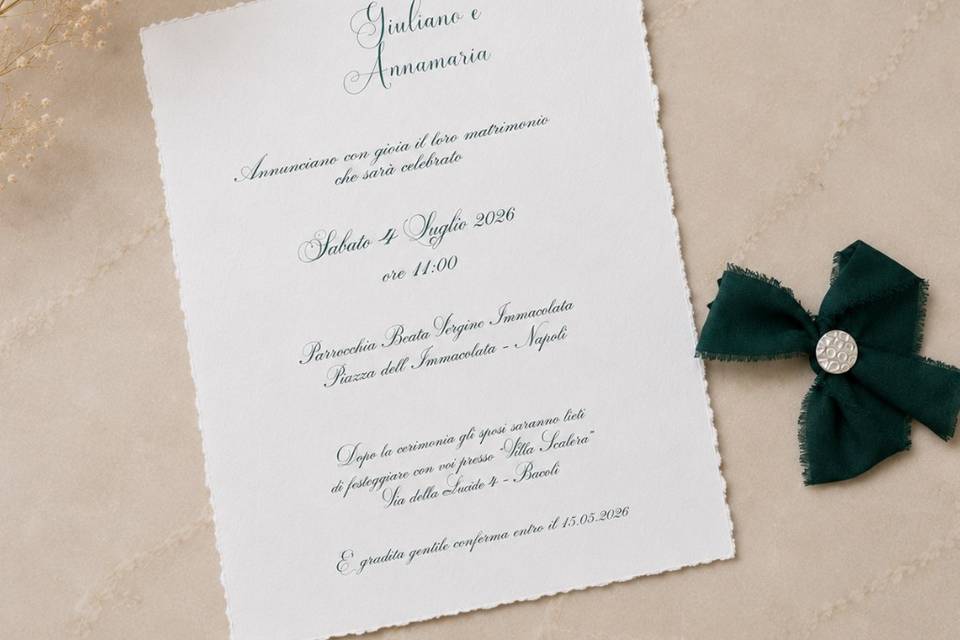 Giuliano e
Annamaria
Annunciano con gioia il loro matrimonio
che sarà celebrato
Sabato 4 Luglio 2026
ore 11:00
Parrocchia Beata Vergine Immacolata
Piazza dell'Immacolata - Napoli
Dopo la cerimonia gli sposi saranno lieti
di festeggiare con voi presso "Villa Scalera"
Via della Lucide 4 - Bacoli
E gradita gentile conferma entro il 15.05.2026